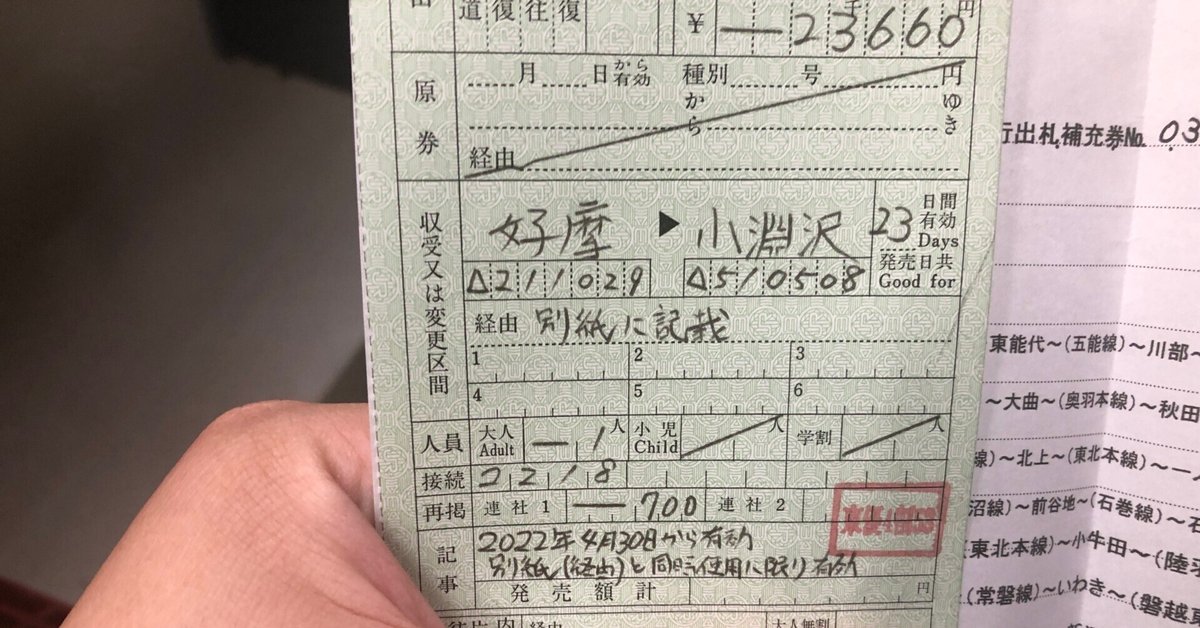 道 復 往 復
¥ 一23660 円
原券
月 日から有効 種別 号 円
から ゆき
経由
収受又は変更区間
好摩 ▶ 小淵沢 23 日間有効 Days
△211029 △510508 発売日共 Good for
経由 別紙に記載
1 2 3
4 5 6
人員 大人 Adult 一1人 小児 Child 人 学割 人
接続 コ218
再掲 連社1 一700 連社2
記事 2022年4月30日から有効
別紙(経由)と同時使用に限り有効
発売額計 円
行出札補充券No. 03
東能代〜(五能線)〜川部〜
〜大曲〜(奥羽本線)〜秋田
線)〜北上〜(東北本線)〜一ノ
沼線)〜前谷地〜(石巻線)〜石
東北本線)〜小牛田〜(陸
(常磐線)〜いわき〜(磐越東